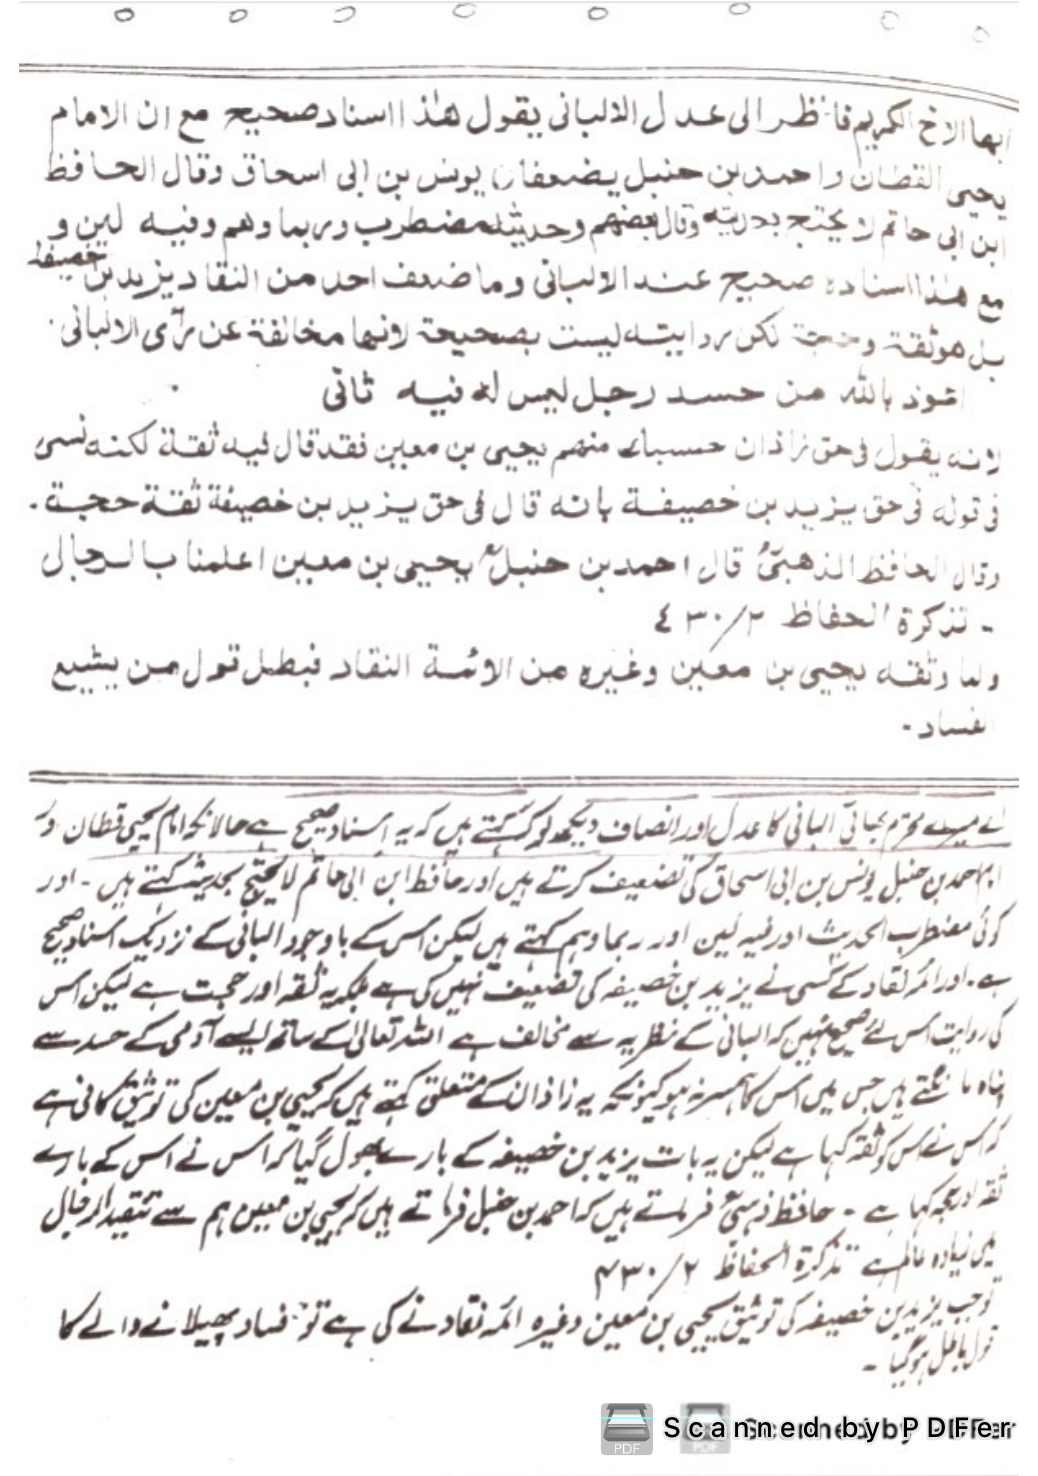 ايها الاخ الكريم فانظر الى عدل الالبانى يقول هٰذا اسناد صحيح مع ان الامام
يحيى القطان واحمد بن حنبل يضعفان يونس بن ابى اسحاق وقال الحافظ
ابن ابى حاتم لا يحتج بحديثه وقال بعضهم وحديثه مضطرب وربما وهم وفيه لين و
مع هٰذا اسناده صحيح عند الالبانى وما ضعف احد من النقاد يزيد بن خصيفة
بل هو ثقة وحجة لكن روايته ليست بصحيحة لانها مخالفة عن رأى الالبانى.
اعوذ بالله من حسد رجل ليس له فيه ثانى
لانه يقول فى حق زاذان حسبك منهم يحيى بن معين فقد قال فيه ثقة لكنه نسى
فى قوله فى حق يزيد بن خصيفة بانه قال فى حق يزيد بن خصيفة ثقة حجة.
وقال الحافظ الذهبىؒ قال احمد بن حنبلؒ يحيى بن معين اعلمنا بالرجال
- تذكرة الحفاظ ٢/٤٣٠
ولما وثقه يحيى بن معين وغيره من الائمة النقاد فبطل قول من يشيع
الفساد -
اے میرے محترم بھائی البانی کا عدل اور انصاف دیکھو کہ کہتے ہیں کہ یہ اسناد صحیح ہے حالانکہ امام یحیی قطان و
امام احمد بن حنبل یونس بن ابی اسحاق کی تضعیف کرتے ہیں اور حافظ ابن ابی حاتم لا یحتج بحدیثہ کہتے ہیں - اور
کوئی مضطرب الحدیث اور فیہ لین اور ربما وہم کہتے ہیں لیکن اس کے باوجود البانی کے نزدیک اسناد صحیح
ہے - اور ائمہ نقاد کے کسی نے یزید بن خصیفہ کی تضعیف نہیں کی ہے بلکہ یہ ثقہ اور حجت ہے لیکن اس
کی روایت اس لئے صحیح نہیں کہ البانی کے نظریہ سے مخالف ہے اللہ تعالیٰ کے ساتھ ایسے آدمی کے حسد سے
پناہ مانگتے ہیں جس میں اس کا ہمسر نہ ہو کیونکہ یہ زاذان کے متعلق کہتے ہیں کہ یحیی بن معین کی توثیق کافی ہے
کہ اس نے اس کو ثقہ کہا ہے لیکن یہ بات یزید بن خصیفہ کے بارے بھول گیا کہ اس نے اس کے بارے
ثقہ اور حجہ کہا ہے - حافظ ذہبیؒ فرماتے ہیں کہ احمد بن حنبل فرماتے ہیں کہ یحیی بن معین ہم سے تنقید الرجال
میں زیادہ عالم ہے تذکرۃ الحفاظ ٢/٤٣٠
توجب یزید بن خصیفہ کی توثیق یحیی بن معین وغیرہ ائمہ نقاد نے کی ہے تو فساد پھیلانے والے کا
قول باطل ہو گیا -
Scanned by PDFer